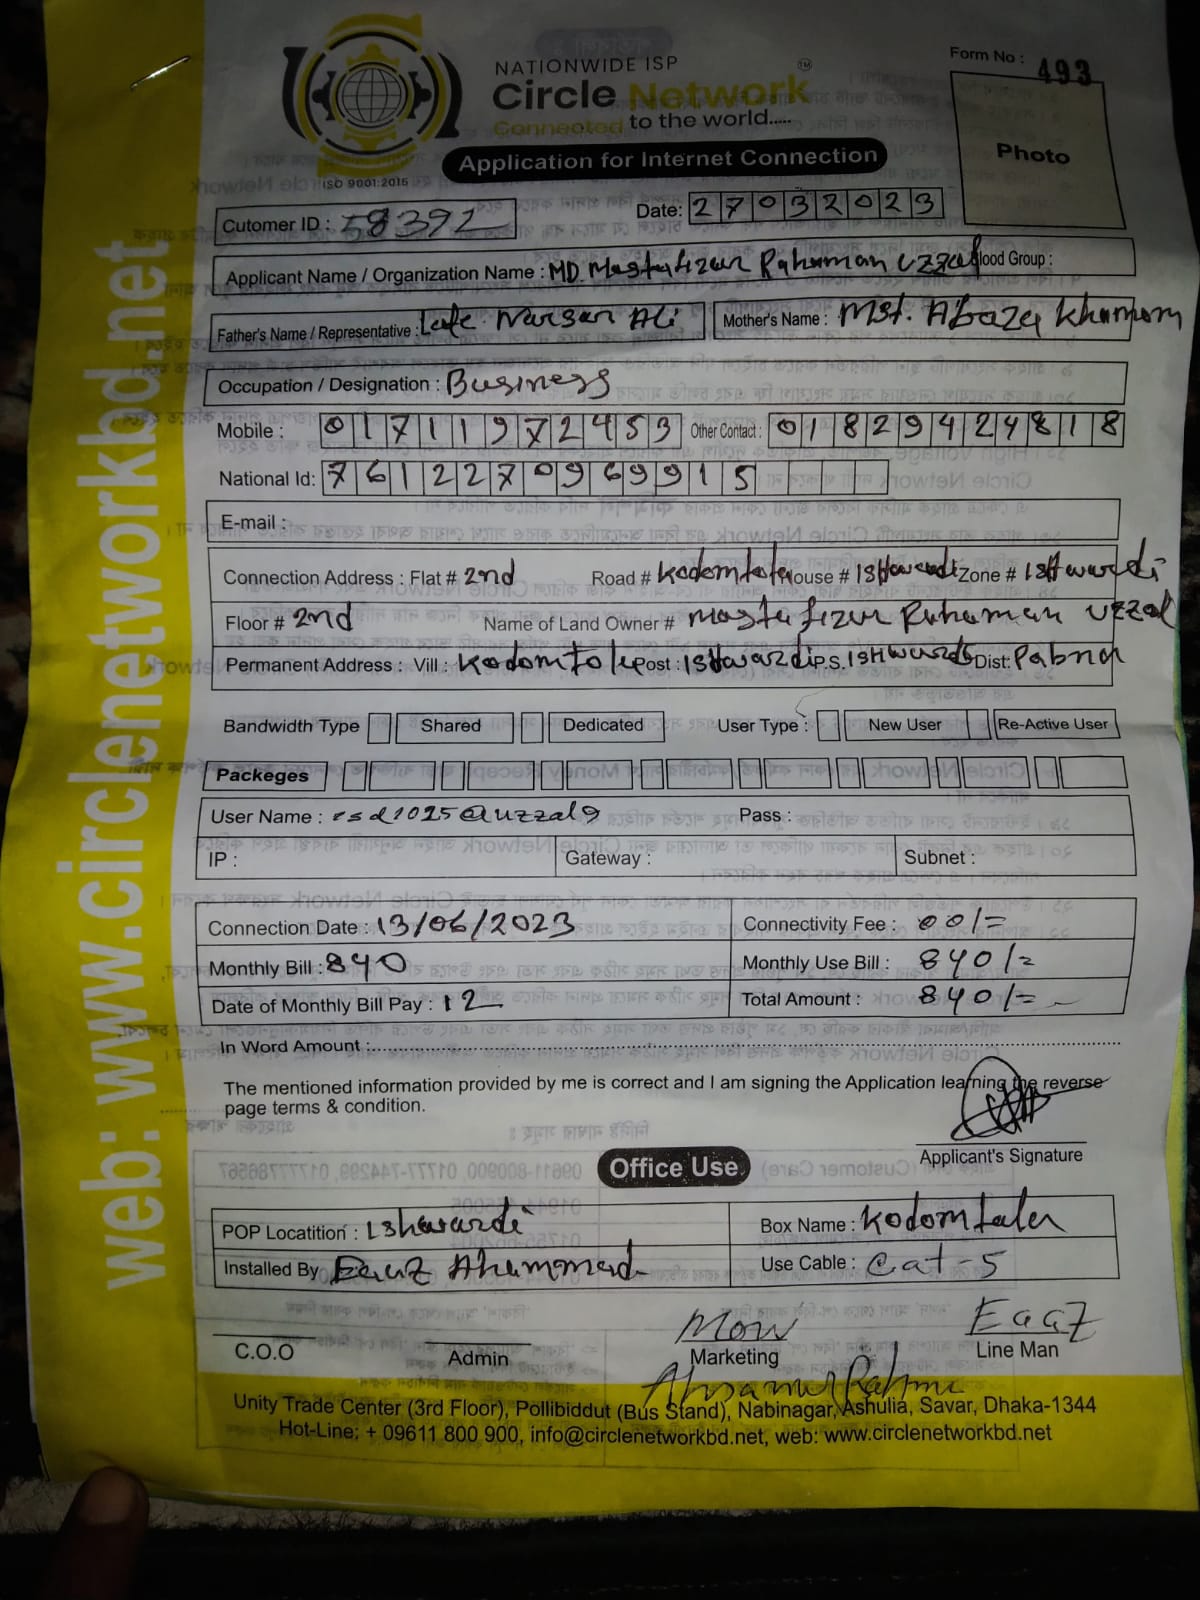 NATIONWIDE ISP
Circle Network TM
Connected to the world.....
ISO 9001:2015
Application for Internet Connection
Form No : 493
Photo
Cutomer ID : 58392
Date: 27032023
Applicant Name / Organization Name : MD. Mastafizur Rahaman Uzzal Blood Group :
Father's Name / Representative : Late. Narsan Ali Mother's Name : Mst. Abaza Khamom
Occupation / Designation : Business
Mobile : 01711972453 Other Contact : 01829424818
National Id: 7612270969915
E-mail :
Connection Address : Flat # 2nd Road # Kodomtola House # ISHwardi Zone # ISHwardi
Floor # 2nd Name of Land Owner # Mostafizur Rahaman Uzzal
Permanent Address : Vill : Kodomtole Post : ISHwardi P.S. ISHwardi Dist: Pabna
Bandwidth Type Shared Dedicated User Type : New User Re-Active User
Packeges
User Name : esd1025@uzzal9 Pass :
IP : Gateway : Subnet :
Connection Date : 13/06/2023 Connectivity Fee : 00/=
Monthly Bill : 840 Monthly Use Bill : 840/=
Date of Monthly Bill Pay : 12 Total Amount : 840/=
In Word Amount :
The mentioned information provided by me is correct and I am signing the Application learning the reverse
page terms & condition.
Applicant's Signature
Office Use
POP Locatition : Ishwardi Box Name : Kodomtala
Installed By Eaaz Ahammad Use Cable : Cat-5
Mow Eaaz
C.O.O Admin Marketing Line Man
Unity Trade Center (3rd Floor), Pollibiddut (Bus Stand), Nabinagar, Ashulia, Savar, Dhaka-1344
Hot-Line: + 09611 800 900, info@circlenetworkbd.net, web: www.circlenetworkbd.net
web: www.circlenetworkbd.net